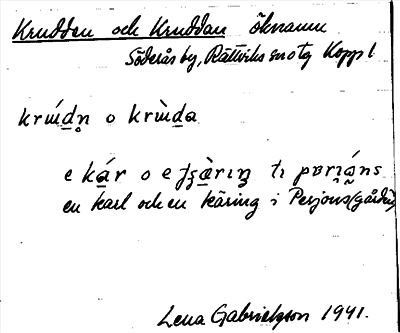 Krudden och Kruddan öknamn
Söderås by, Rättviks sn o tg Kopp l
krɯ́dn̥ o krɯ̀da
e kár o e
en karl och en käring i Perjons(gården)
Lena Gabrielsson 1941.